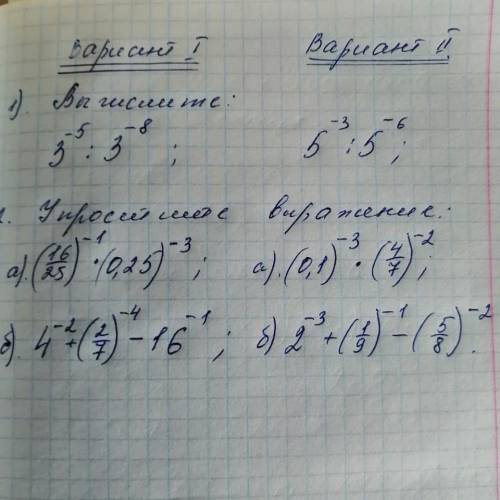 Вариант I Вариант II
1). Вычислите:
3⁻⁵ : 3⁻⁸ ; 5⁻³ : 5⁻⁶ ;
2. Упростите выражение:
а). (16/25)⁻¹ · (0,25)⁻³ ; а). (0,1)⁻³ · (4/7)⁻² ;
б). 4⁻² + (2/7)⁻⁴ − 16⁻¹ ; б) 2⁻³ + (1/9)⁻¹ − (5/8)⁻² .